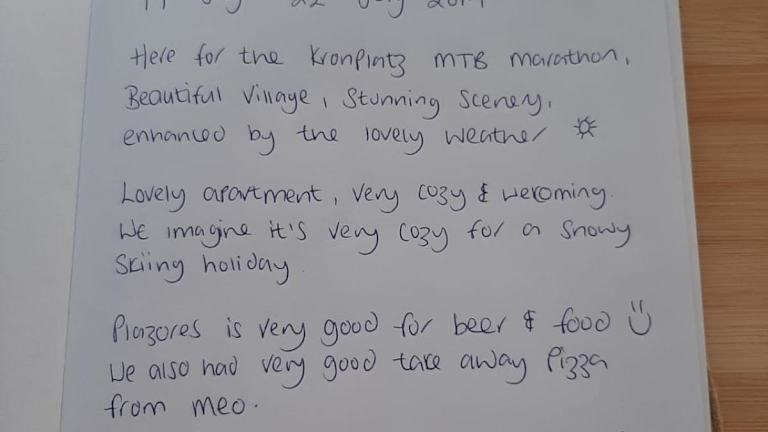 Here for the Kronplatz MTB marathon,
Beautiful village, stunning scenery,
enhanced by the lovely weather
Lovely apartment, very cozy & welcoming.
We imagine it's very cozy for a snowy
skiing holiday.
Plazores is very good for beer & food
We also had very good take away pizza
from meo.